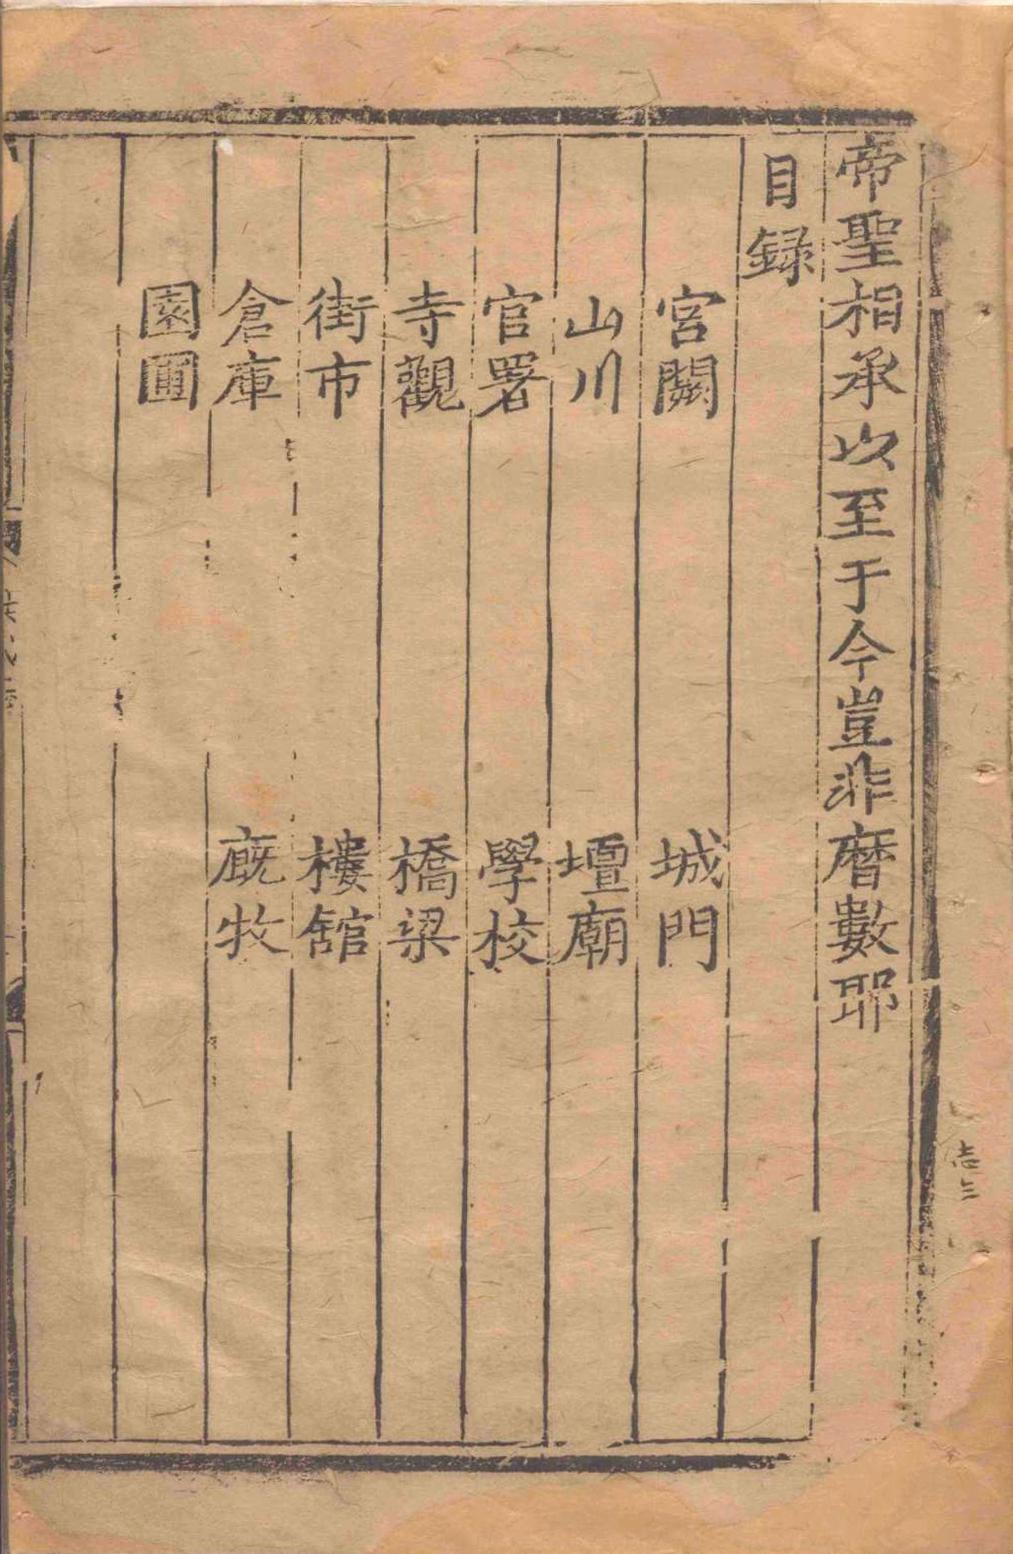 帝聖相承以至于今豈非曆數耶
目録
宮闕 城門
山川 壇廟
官署 學校
寺觀 橋梁
街市 樓舘
倉庫 廐牧
園圃
志三